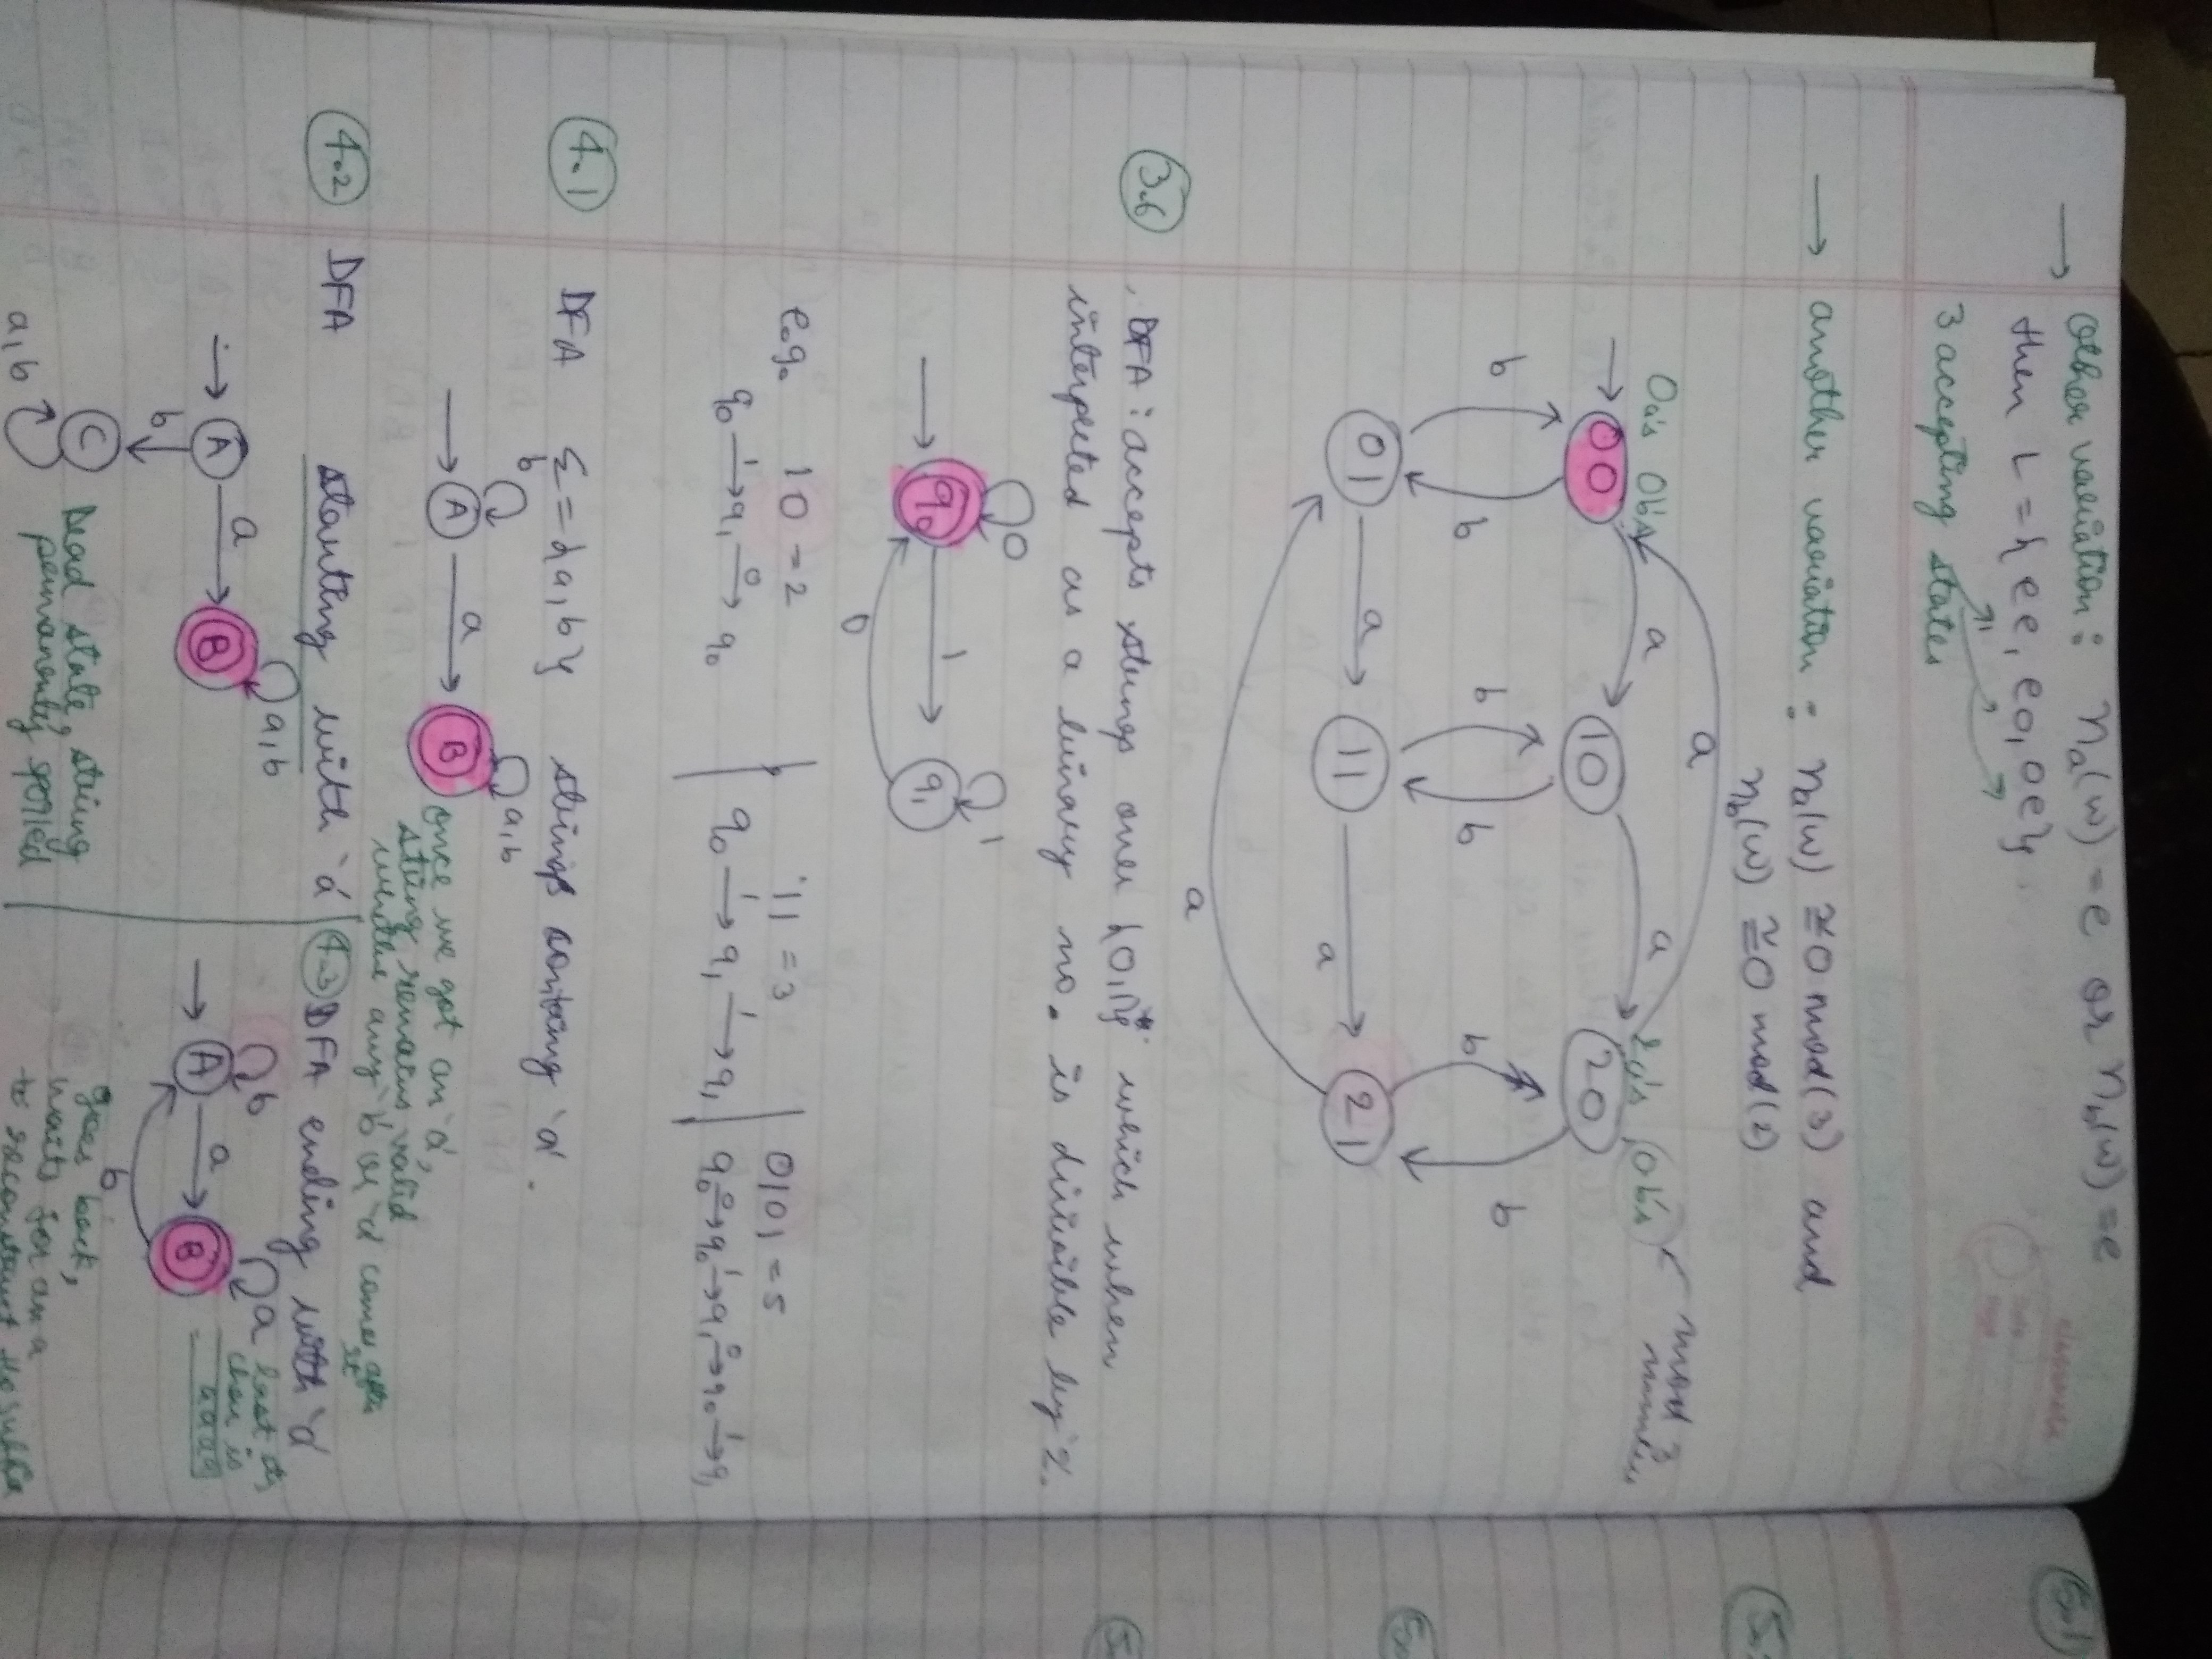 → Other variation: na(w) = e or nb(w) = e
then L = {ee, eo, oe}
3 accepting states
→ another variation: na(w) ≅ 0 mod(3) and
nb(w) ≅ 0 mod(2)
0a's 0b's
2a's 0b's
mod 3
00 a 10 a 20
a
b b b b b b
01 a 11 a 21
a
3.6 DFA: accepts strings over {0,1}* which when
interpreted as a binary no. is divisible by 2.
0 1
q0 1 q1
0
e.g. 10 = 2 | 11 = 3 | 0101 = 5
q0 1→ q1 0→ q0 | q0 1→ q1 1→ q1 | q0 0→ q0 1→ q1 0→ q0 1→ q1
4.1 DFA Σ = {a, b} strings containing 'a'.
b a,b
A a B
once we got an 'a',
string remains valid
whether any 'b' or 'a' comes after
it
4.2 DFA starting with 'a'
A a B a,b
b
C a,b
Dead state, string
permanently spoiled
4.3 DFA ending with 'a'
b a
A a B
b
last
char is
aaaa
goes back,
waits for an a
to